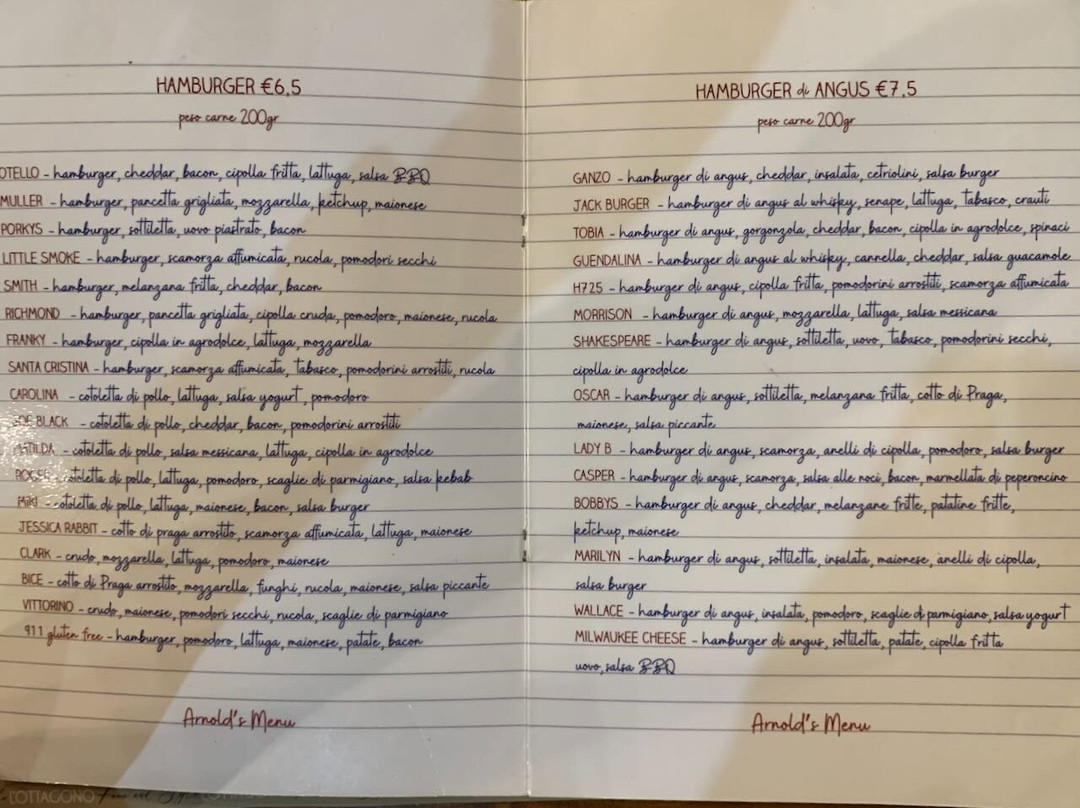 HAMBURGER €6,5
peso carne 200gr
OTELLO - hamburger, cheddar, bacon, cipolla fritta, lattuga, salsa BBQ
MULLER - hamburger, pancetta grigliata, mozzarella, ketchup, maionese
PORKYS - hamburger, sottiletta, uovo piastrato, bacon
LITTLE SMOKE - hamburger, scamorza affumicata, rucola, pomodori secchi
SMITH - hamburger, melanzana fritta, cheddar, bacon
RICHMOND - hamburger, pancetta grigliata, cipolla cruda, pomodoro, maionese, rucola
FRANKY - hamburger, cipolla in agrodolce, lattuga, mozzarella
SANTA CRISTINA - hamburger, scamorza affumicata, tabasco, pomodorini arrostiti, rucola
CAROLINA - cotoletta di pollo, lattuga, salsa yogurt, pomodoro
BLACK - cotoletta di pollo, cheddar, bacon, pomodorini arrostiti
- cotoletta di pollo, salsa messicana, lattuga, cipolla in agrodolce
cotoletta di pollo, lattuga, pomodoro, scaglie di parmigiano, salsa kebab
MIKI - cotoletta di pollo, lattuga, maionese, bacon, salsa burger
JESSICA RABBIT - cotto di praga arrostito, scamorza affumicata, lattuga, maionese
CLARK - crudo, mozzarella, lattuga, pomodoro, maionese
BICE - cotto di Praga arrostito, mozzarella, funghi, rucola, maionese, salsa piccante
VITTORINO - crudo, maionese, pomodori secchi, rucola, scaglie di parmigiano
911 gluten free - hamburger, pomodoro, lattuga, maionese, patate, bacon
Arnold's Menu
L'OTTAGONO
HAMBURGER di ANGUS €7,5
peso carne 200gr
GANZO - hamburger di angus, cheddar, insalata, cetriolini, salsa burger
JACK BURGER - hamburger di angus al whisky, senape, lattuga, tabasco, crauti
TOBIA - hamburger di angus, gorgonzola, cheddar, bacon, cipolla in agrodolce, spinaci
GUENDALINA - hamburger di angus al whisky, cannella, cheddar, salsa guacamole
H725 - hamburger di angus, cipolla fritta, pomodorini arrostiti, scamorza affumicata
MORRISON - hamburger di angus, mozzarella, lattuga, salsa messicana
SHAKESPEARE - hamburger di angus, sottiletta, uovo, tabasco, pomodorini secchi,
cipolla in agrodolce
OSCAR - hamburger di angus, sottiletta, melanzana fritta, cotto di Praga,
maionese, salsa piccante
LADY B - hamburger di angus, scamorza, anelli di cipolla, pomodoro, salsa burger
CASPER - hamburger di angus, scamorza, salsa alle noci, bacon, marmellata di peperoncino
BOBBYS - hamburger di angus, cheddar, melanzane fritte, patatine fritte,
ketchup, maionese
MARILYN - hamburger di angus, sottiletta, insalata, maionese, anelli di cipolla,
salsa burger
WALLACE - hamburger di angus, insalata, pomodoro, scaglie di parmigiano, salsa yogurt
MILWAUKEE CHEESE - hamburger di angus, sottiletta, patate, cipolla fritta
uovo, salsa BBQ
Arnold's Menu